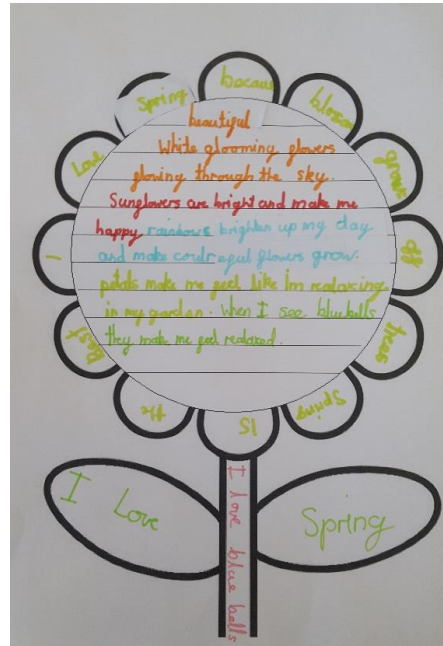 I
Love
Spring
becaus
blosom
grows
off
treas
Spring
IS
the
Best
beautiful
White glooming flowers
flowing through the sky.
Sunflowers are bright and make me
happy rainbows brighten up my day
and make flowers grow.
petals make me feel like I'm realaxing
in my garden. When I see bluebells
they make me feel realaxed.
I Love
Spring
I love blue bells